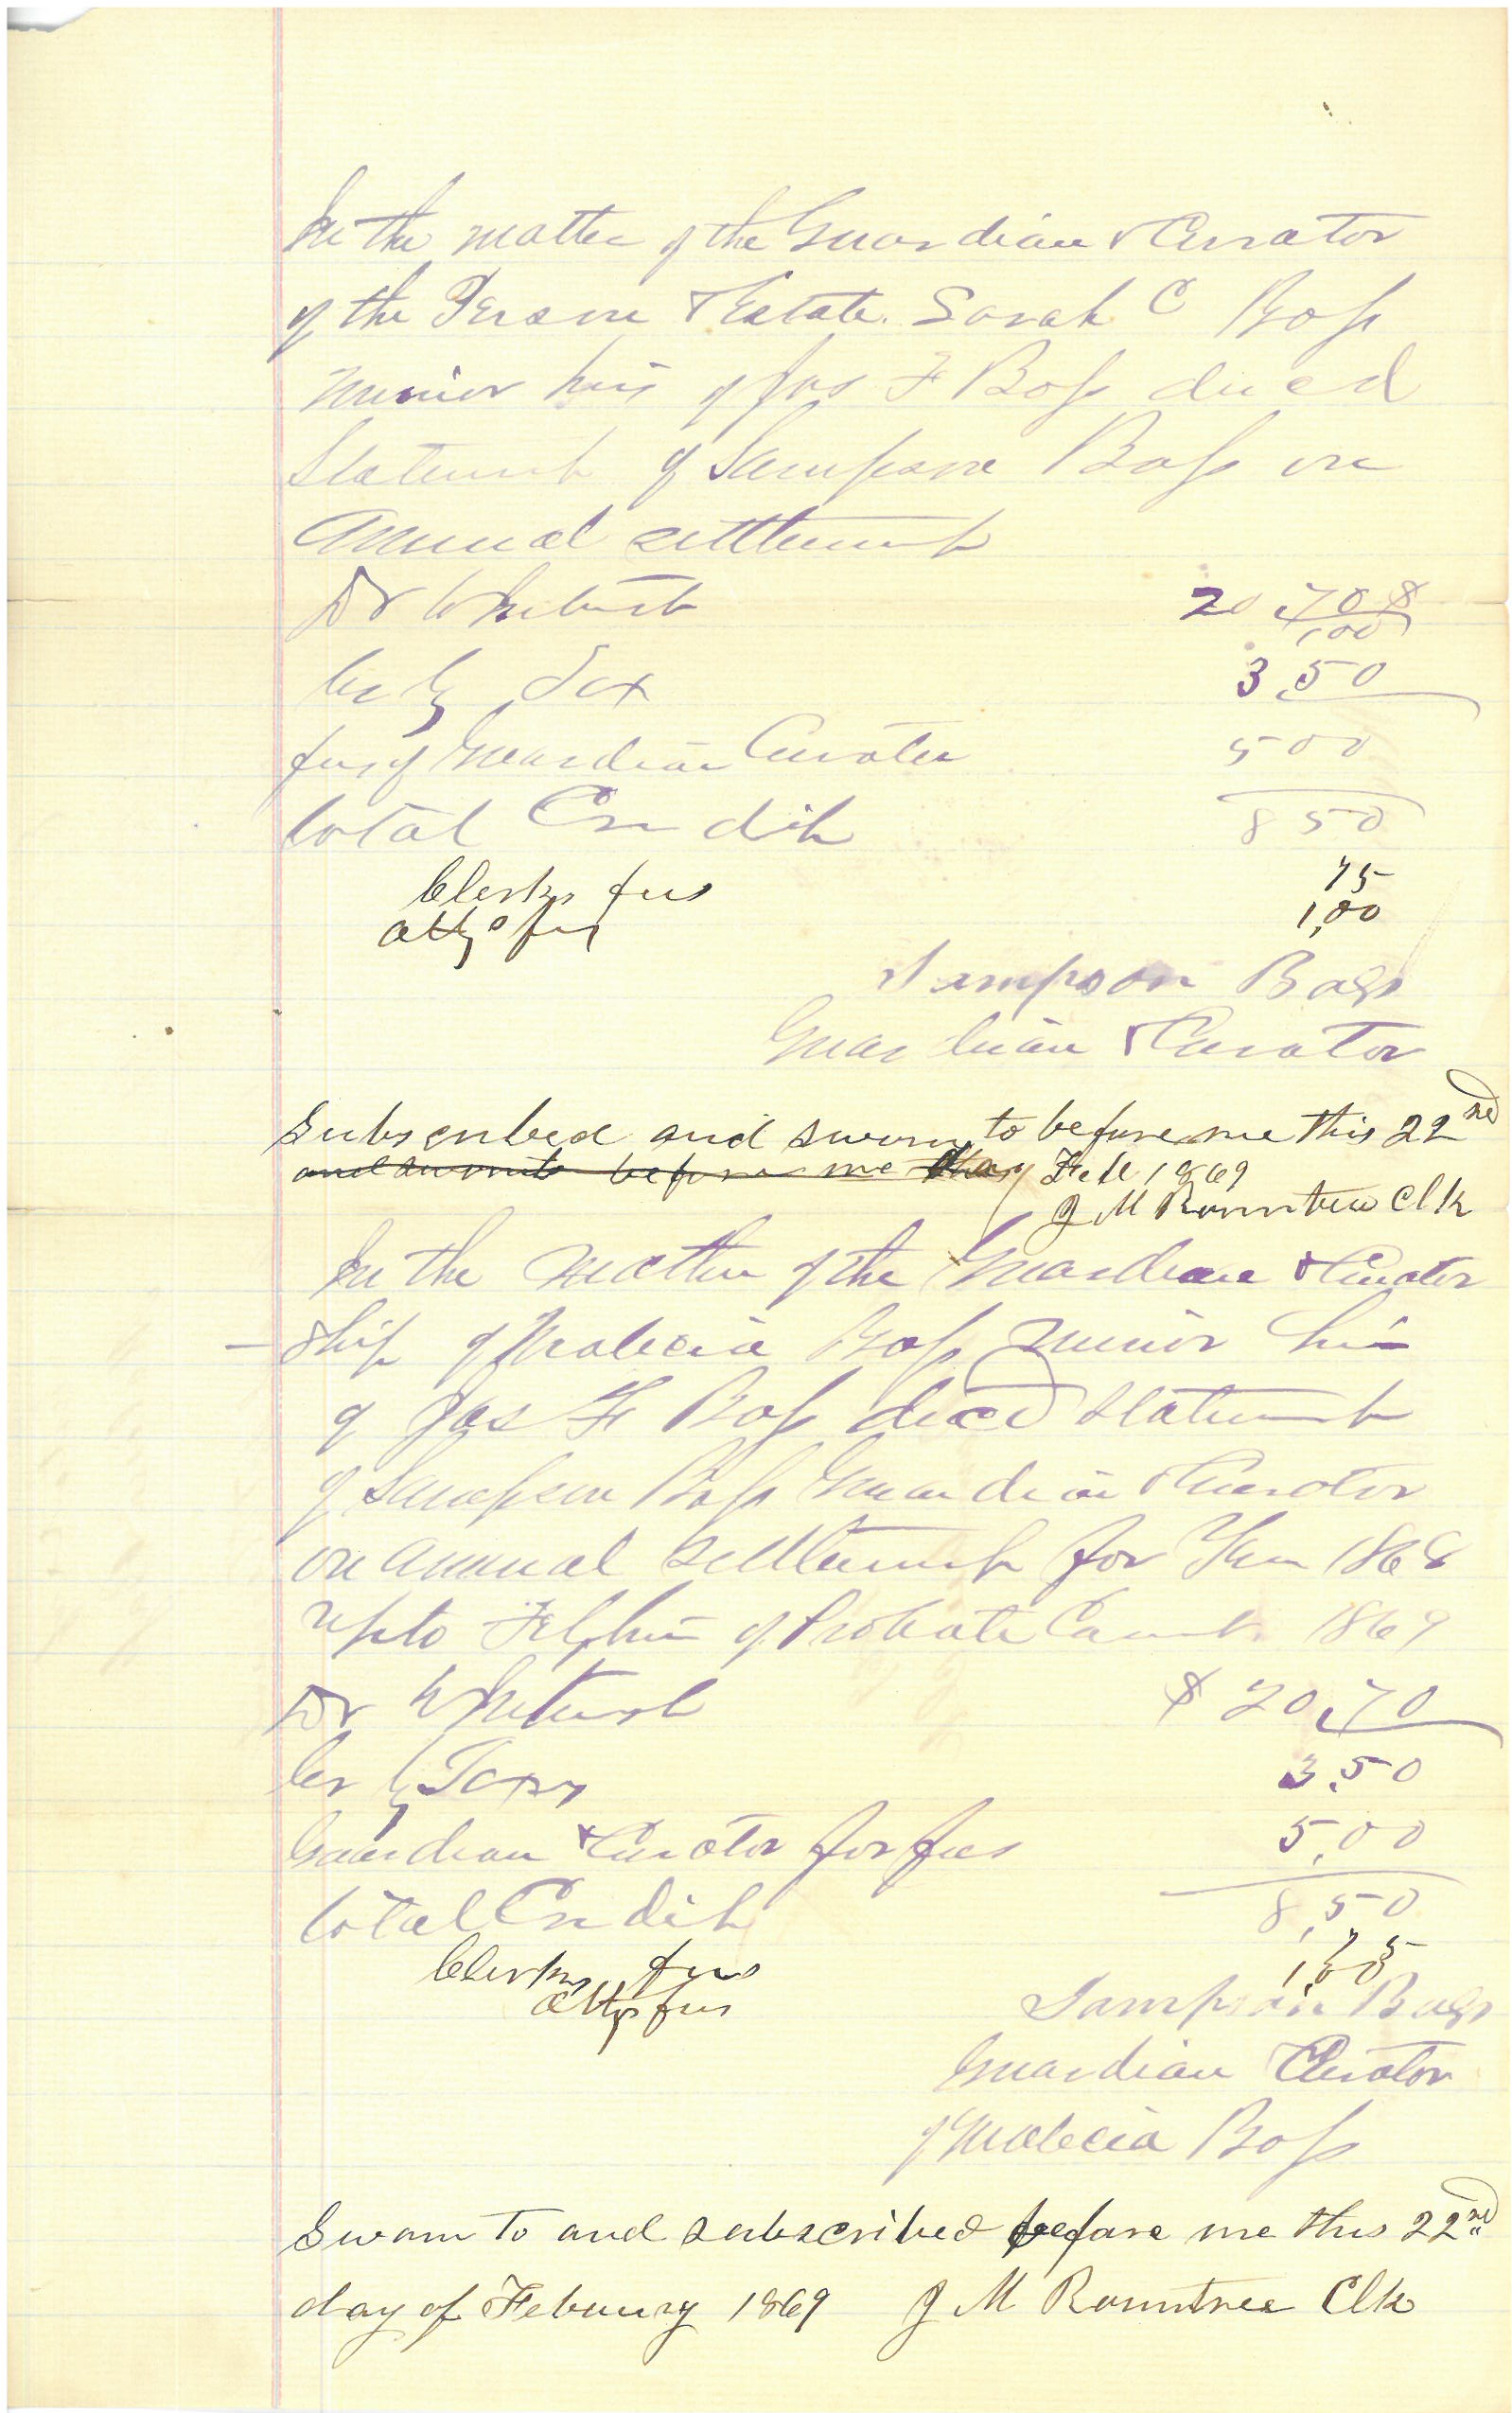 In the matter of the Guardian & Curator
of the Person & Estate. Sarah C Bass
minor heir of Jas F Bass decd
Statement of Sampson Bass on
Annual settlement
Dr to Interest 20,70 $
1,00
Cr by Tax 3,50
fees of Guardian Curator 500
total Credit 850
Clerks fees 75
attys fees 1,00
Sampson Bass
Guardian & Curator
Subscribed and sworn to before me this 22nd
and sworn to before me this day Feb 1869
J M Rountree Clk
In the matter of the Guardian & Curator
ship of Malecia Bass minor heir
of Jas F Bass decd statement
of Sampson Bass Guardian & Curator
on annual settlement for Year 1868
up to Feb term of Probate Court. 1869
Dr to Interest $ 20,70
Cr by Taxes 3,50
Guardian & Curator for fees 5,00
total Credit 8,50
Clerks fees 75
attys fees 1,00
Sampson Bass
Guardian Curator
of Malecia Bass
Sworn to and subscribed before me this 22nd
day of Febuury 1869 J M Rountree Clk